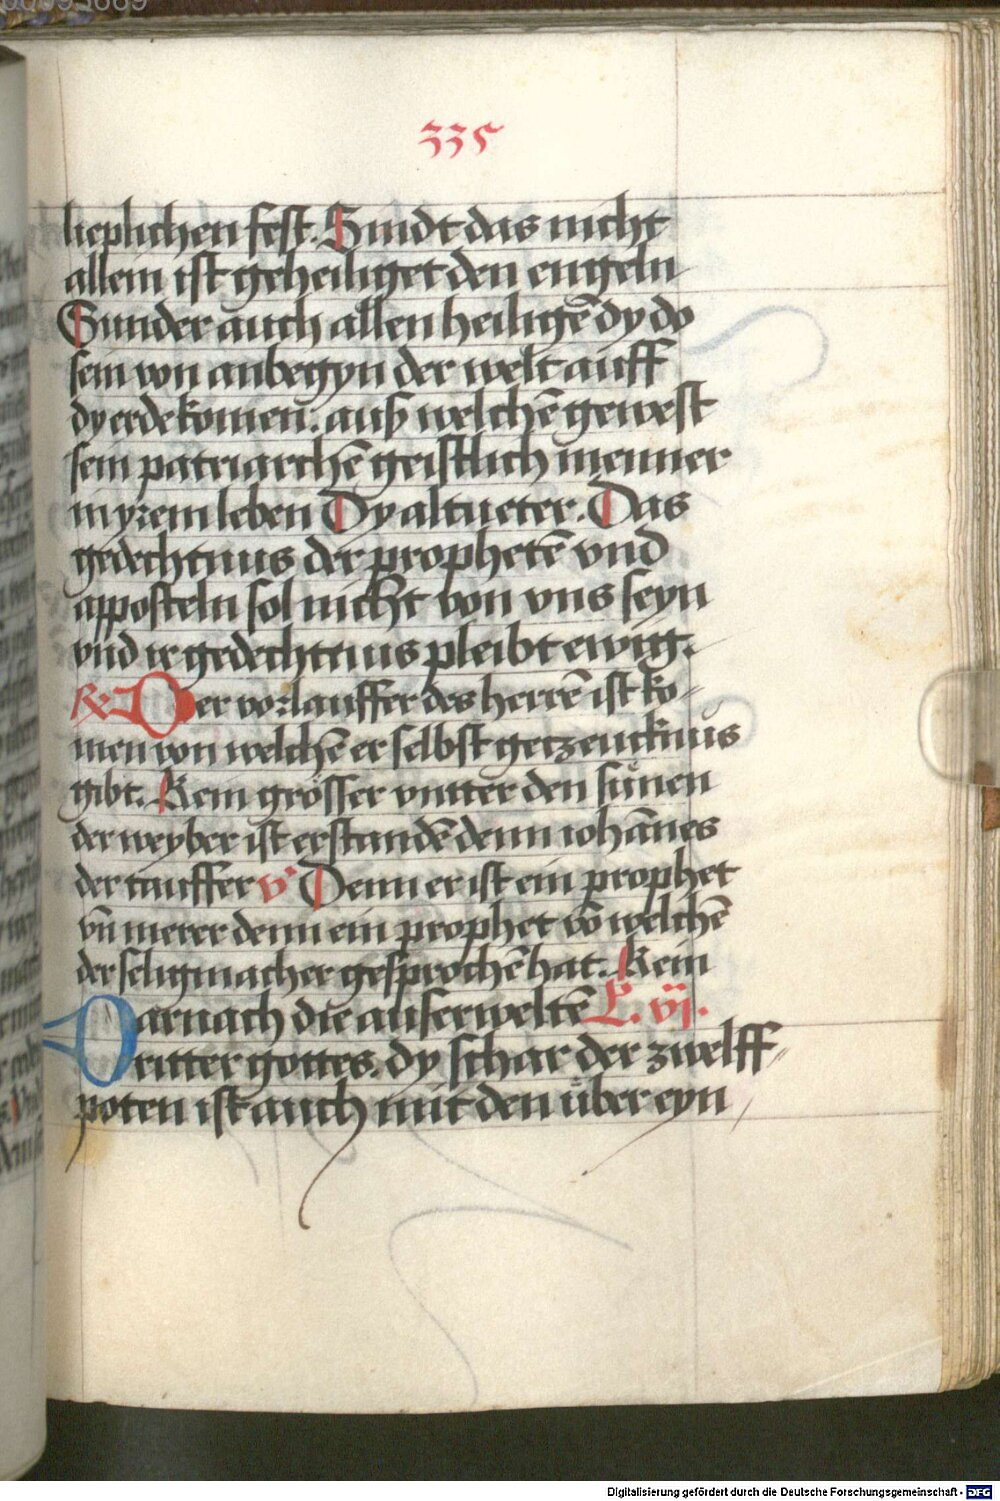 335
lieplichen fest. Sindt das nicht
allein ist geheiliget den engeln
Sunder auch allen heiligē dy do
sein von anbegyn der welt auff
dy erde komen: auß welchē gewest
sein patriarchē geistlich menner
in yrem leben Dy altueter. Das
gedechtnus der prophetē vnd
apposteln sol nicht von vns seyn
vnd ir gedechtnus pleibt ewig.
R Der vorlauffer des herrē ist ko-
men von welchē er selbst getzeucknus
gibt. Kein grösser vntter den sünen
der weyber ist erstandē denn iohānes
der tauffer v Denn er ist ein prophet
vn̄ merer denn ein prophet vō welchē
der seligmacher gesprochē hat. Kein
Darnach die auserweltē L. vj.
ritter gottes. dy schar der zwelff
poten ist auch mit den über eyn
Digitalisierung gefördert durch die Deutsche Forschungsgemeinschaft - DFG